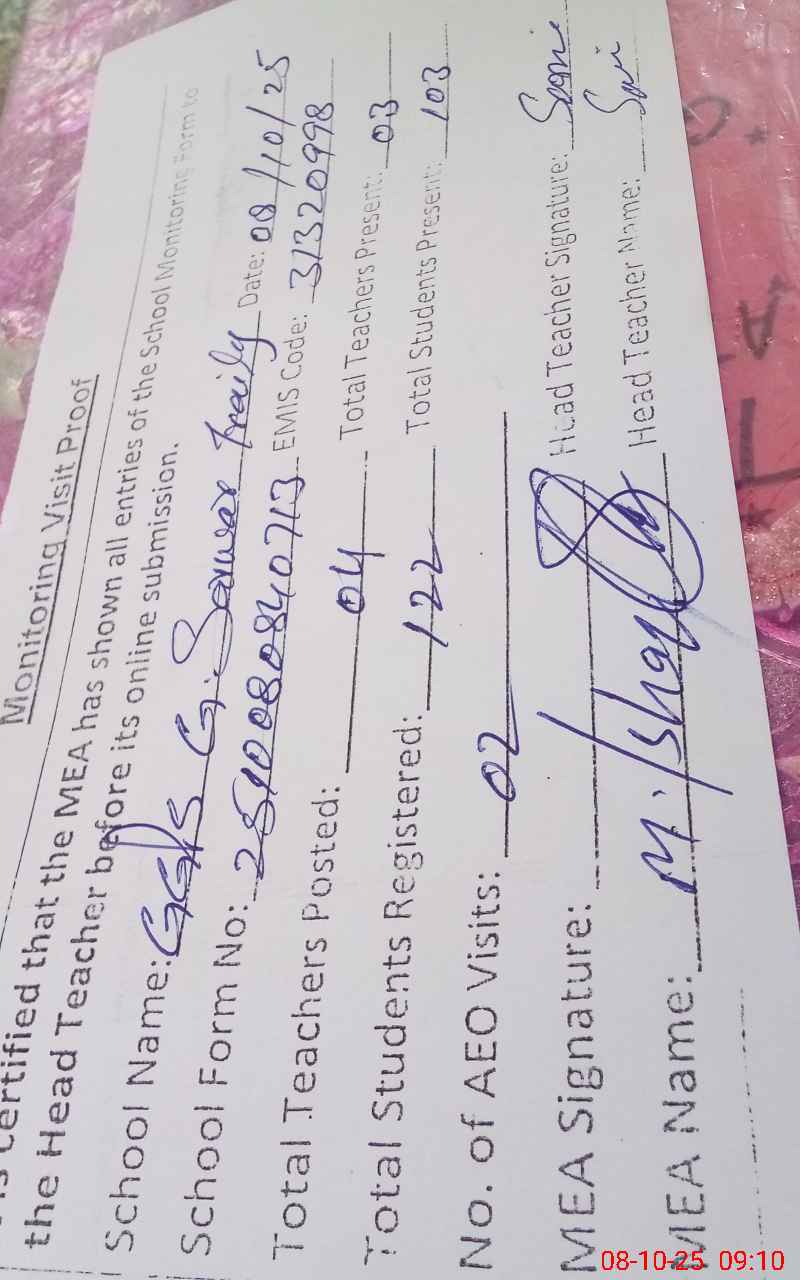 Monitoring Visit Proof
is certified that the MEA has shown all entries of the School Monitoring Form to
the Head Teacher before its online submission.
School Name: GGPS G. Sarwar Traily Date: 08/10/25
School Form No: 2510080840713 EMIS Code: 31320998
Total Teachers Posted: 04 Total Teachers Present: 03
Total Students Registered: 122 Total Students Present: 103
No. of AEO Visits: 02
MEA Signature: Head Teacher Signature:
MEA Name: M. Ishaq Head Teacher Name:
08-10-25 09:10